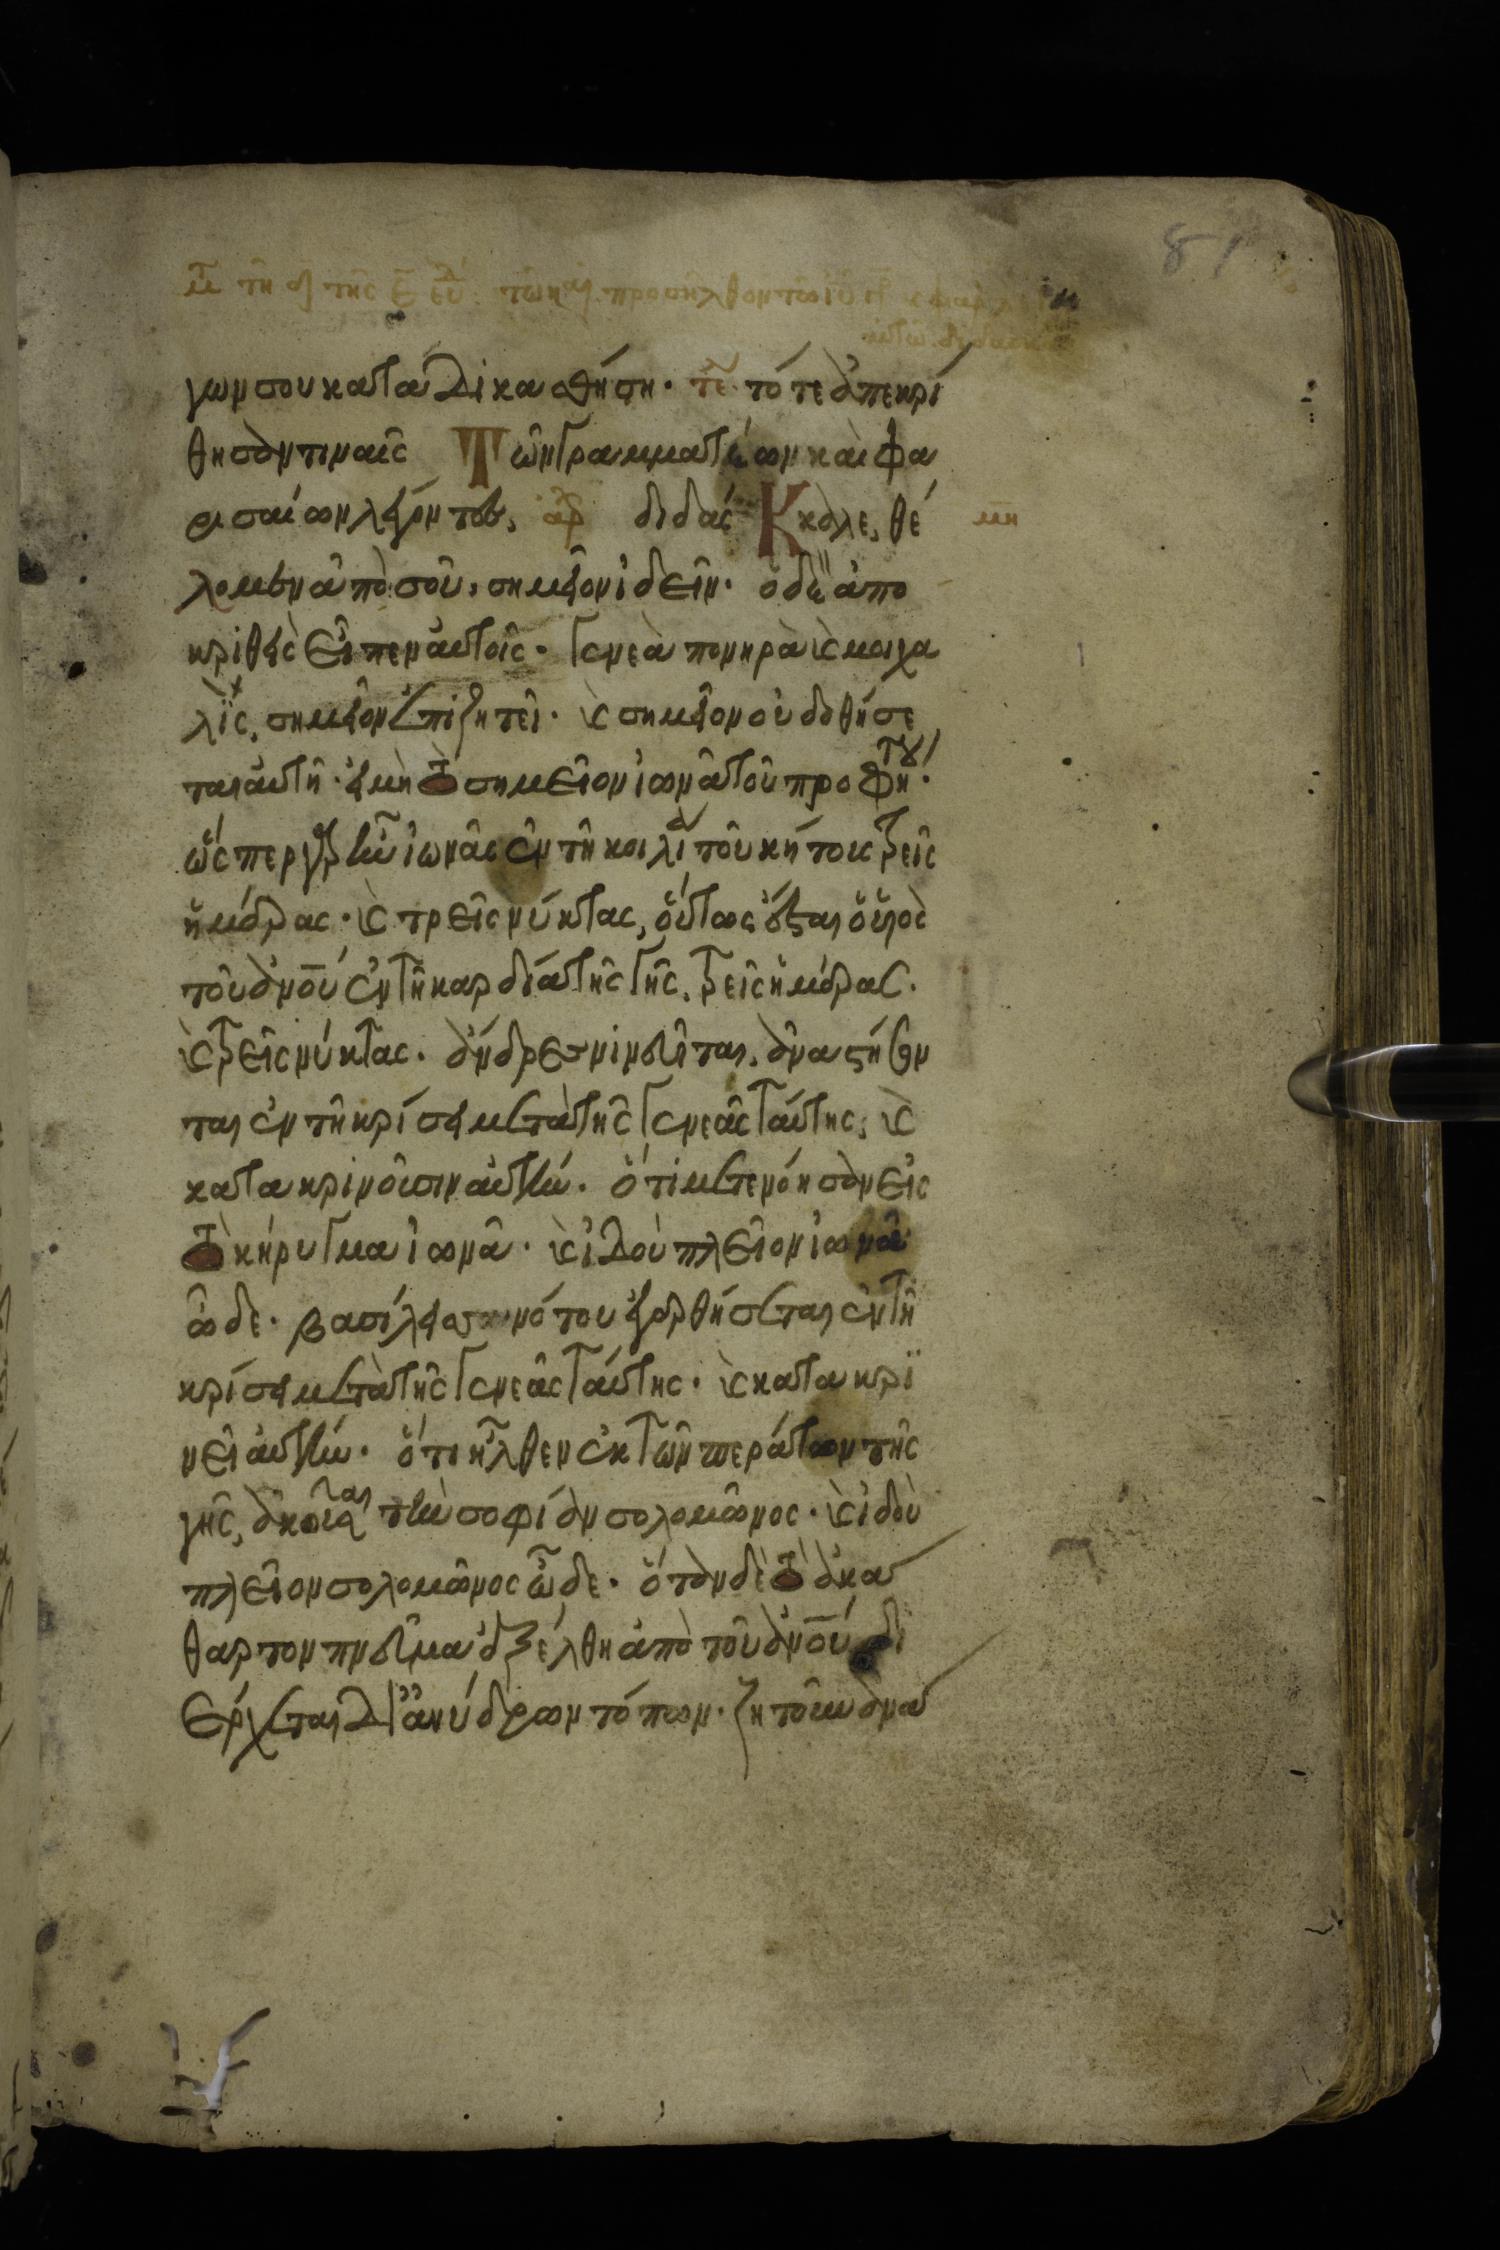 81
τῆ τῆς τῶ καιρῷ προσῆλθον τῶ ιυ
γων σου καταδικασθήση. τε τότε ἀπεκρί
θησάν τινες Τῶν γραμματέων καὶ φα
ρισαίων λέγοντες, αρ διδάσ Κκαλε, θέ μη
λομεν ἀπὸ σοῦ, σημεῖον ἰδεῖν. ὁ δὲ ἀπο
κριθεὶς εἶπεν αὐτοῖς. γενεὰ πονηρὰ κ μοιχα
λὶς, σημεῖον ἐπιζητεῖ. κ σημεῖον οὐ δοθήσε
ται αὐτῆ. εἰ μὴ τὸ σημεῖον ἰωνᾶ τοῦ προφήτου.
ὥσπερ γὰρ ἦν ἰωνᾶς ἐν τῆ κοιλία τοῦ κήτους τρεῖς
ἡμέρας. κ τρεῖς νύκτας, οὕτως ἔσται ὁ υἱὸς
τοῦ ἀνου ἐν τῆ καρδία τῆς γῆς, τρεῖς ἡμέρας.
κ τρεῖς νύκτας. ἄνδρες νινευῖται, ἀναστήσον
ται ἐν τῆ κρίσει μετὰ τῆς γενεᾶς ταύτης, κ
κατακρινοῦσιν αὐτήν. ὅτι μετενόησαν εἰς
τὸ κήρυγμα ἰωνᾶ. κ ἰδοὺ πλεῖον ἰωνᾶ
ὧδε. βασίλεισσα νότου ἐγερθήσεται ἐν τῆ
κρίσει μετὰ τῆς γενεᾶς ταύτης. κ κατακρι
νεῖ αὐτήν. ὅτι ἦλθεν ἐκ τῶν περάτων τῆς
γῆς, ἀκοῦσαι τὴν σοφίαν σολομῶνος. κ ἰδοὺ
πλεῖον σολομῶνος ὧδε. ὅταν δὲ τὸ ἀκά
θαρτον πνεῦμα ἐξέλθη ἀπὸ τοῦ ἀνου δι
έρχεται δι ἀνύδρων τόπων. ζητοῦν ἀνά